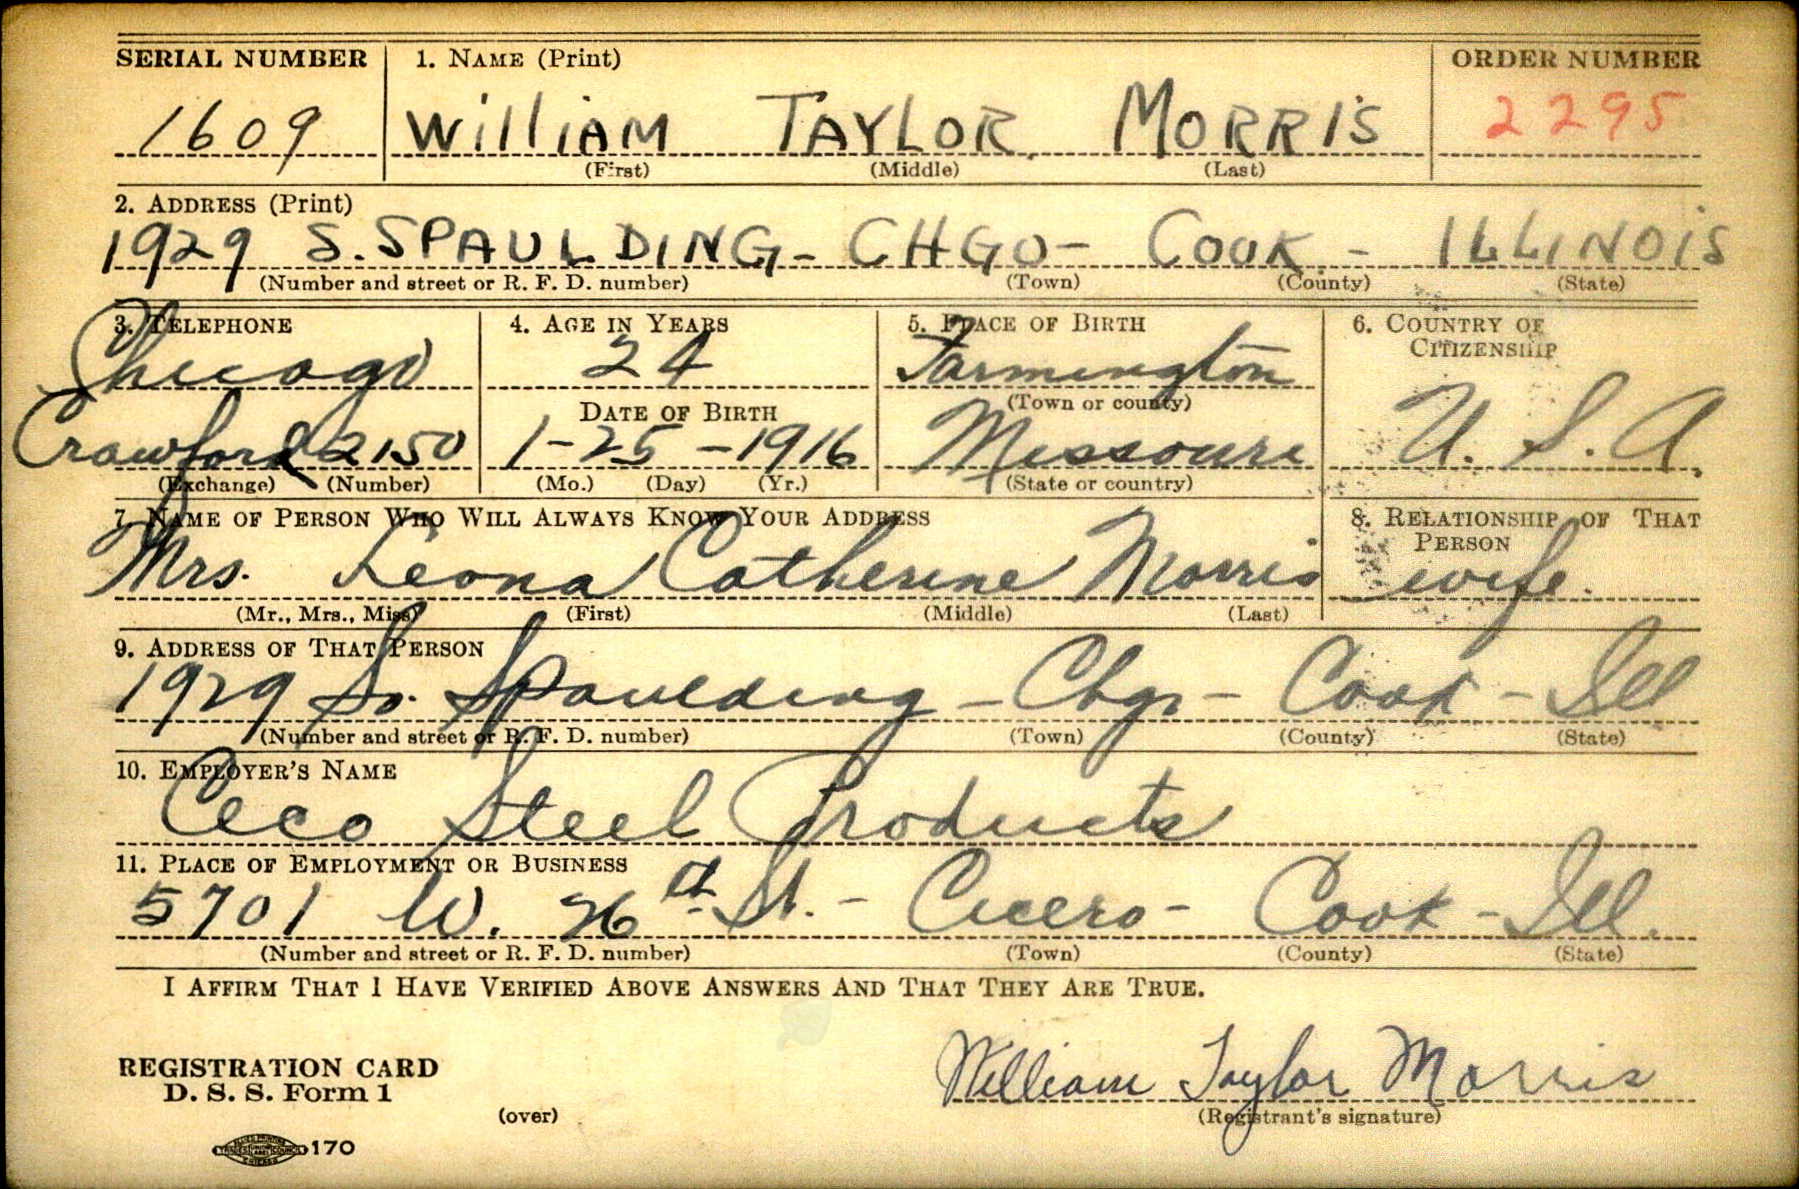 SERIAL NUMBER 1. NAME (Print) ORDER NUMBER
1609 William TAYLOR MORRIS 2295
(First) (Middle) (Last)
2. ADDRESS (Print)
1929 S. SPAULDING - CHGO - COOK - ILLINOIS
(Number and street or R. F. D. number) (Town) (County) (State)
3. TELEPHONE 4. AGE IN YEARS 5. PLACE OF BIRTH 6. COUNTRY OF CITIZENSHIP
Chicago 24 Farmington
DATE OF BIRTH (Town or county)
Crawford 2150 1-25-1916 Missouri U. S. A.
(Exchange) (Number) (Mo.) (Day) (Yr.) (State or country)
7. NAME OF PERSON WHO WILL ALWAYS KNOW YOUR ADDRESS 8. RELATIONSHIP OF THAT PERSON
Mrs. Leona Catherine Morris wife.
(Mr., Mrs., Miss) (First) (Middle) (Last)
9. ADDRESS OF THAT PERSON
1929 So. Spaulding - Chgo - Cook - Ill
(Number and street or R. F. D. number) (Town) (County) (State)
10. EMPLOYER'S NAME
Ceco Steel Products
11. PLACE OF EMPLOYMENT OR BUSINESS
5701 W. 26 St. - Cicero - Cook - Ill.
(Number and street or R. F. D. number) (Town) (County) (State)
I AFFIRM THAT I HAVE VERIFIED ABOVE ANSWERS AND THAT THEY ARE TRUE.
REGISTRATION CARD
D. S. S. Form 1
William Taylor Morris
(over) (Registrant's signature)
170